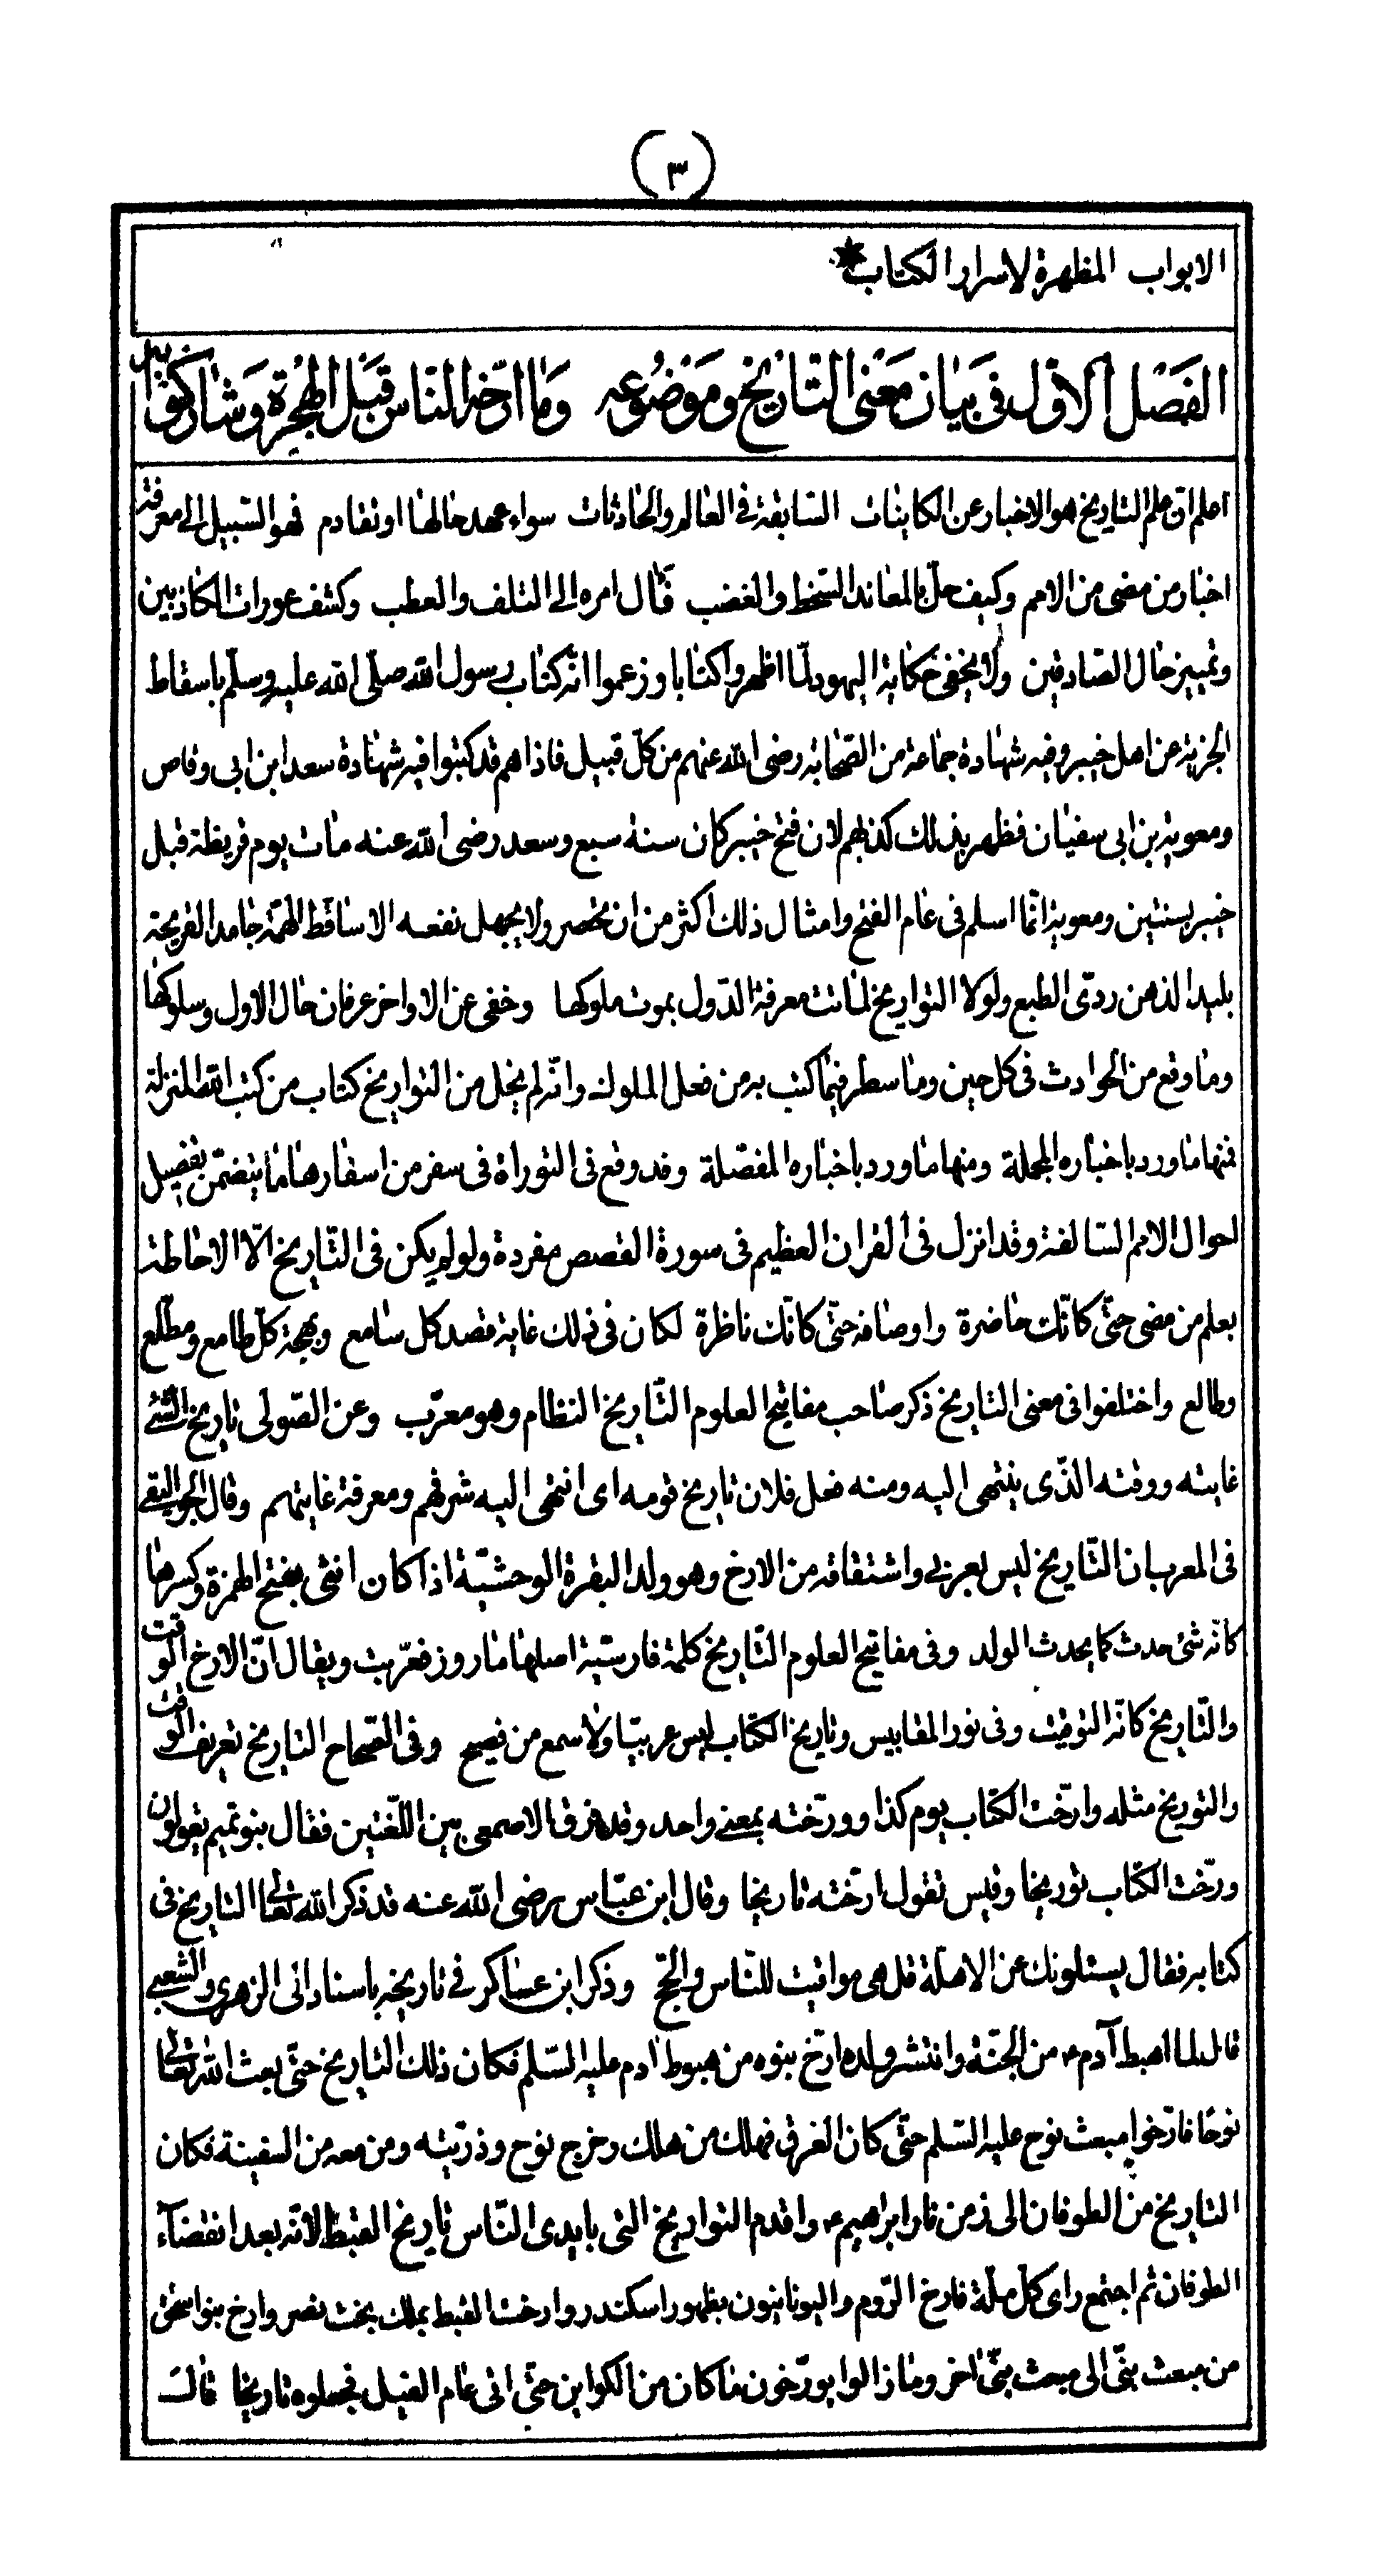 (٣)
الابواب المظهرة لاسرار الكتاب*
الفَصْل الاوّل فى بيَان مَعْنى التّاريخ ومَوْضُوعه وَما ارّخه النّاس قبْل الهجْرة وَشاركوا
اعلم انّ علم التاريخ هو الاخبار عن الكاينات السّابقة فى العالم والحادثات سواء عهد حالها او تقادم فهو السّبيل الى معرفة
اخبار من مضى من الامم وكيف حلّ بالمعاند السّخط والغضب فآل امره الى التلف والعطب وكشف عورات الكاذبين
وتمييز حال الصّادقين ولا يخفى حكاية اليهود لمّا اظهروا كتابا وزعموا انّه كتاب رسول الله صلّى الله عليه وسلّم باسقاط
الجزية عن اهل خيبر وفيه شهادة جماعة من الصّحابة رضى الله عنهم من كلّ قبيل فاذا هم قد كتبوا فيه شهادة سعد ابن ابى وقاص
ومعوية بن ابى سفيان فظهر بذلك كذبهم لان فتح خيبر كان سنة سبع وسعد رضى الله عنه مات يوم قريظة قبل
خيبر بسنتين ومعوية انّما اسلم فى عام الفتح وامثال ذلك اكثر من ان تحصر ولا يجهل نفعه الا ساقط الهمّة جامد القريحة
بليد الذهن ردىّ الطبع ولولا التواريخ لماتت معرفة الدّول بموت ملوكها وخفى عن الاواخر عرفان حال الاول وسلوكها
وما وقع من الحوادث فى كل حين وما سطر فيما كتب به من فعل الملوك وانّه لم يخل من التواريخ كتاب من كتب الله المنزلة
فمنها ما ورد باخباره المجملة ومنها ما ورد باخباره المفصّلة وقد وقع فى التوراة فى سفر من اسفارها ما يتضمّن تفصيل
احوال الامم السّالفة وقد انزل فى القران العظيم فى سورة القصص مفردة ولو لم يكن فى التّاريخ الّا الاحاطة
بعلم من مضى حتّى كانّك حاضرة واوصافه حتّى كانّك ناظرة لكان فى ذلك غاية مقصد كل سامع وبهجة كلّ طامع ومطّلع
وطالع واختلفوا فى معنى التاريخ ذكر صاحب مفاتيح العلوم التّاريخ النظام وهو معرّب وعن الصّولى تاريخ الشئ
غايته ووقته الذّى ينتهى اليه ومنه فعل فلان تاريخ قومه اى انتهى اليه شرفهم ومعرفة غايتهم وقال الجواليقى
فى المعرب ان التّاريخ ليس بعربى واشتقاقه من الارخ وهو ولد البقرة الوحشيّة اذا كان انثى بفتح الهمزة وكسرها
كانّه شئ حدث كما يحدث الولد وفى مفاتيح العلوم التّاريخ كلمة فارسيّة اصلها ماروز فعرّبت ويقال انّ الارخ الوقت
والتّاريخ كانّه التوقيت وفى نور المقابيس وتاريخ الكتاب ليس عربيّا ولا سمع من فصيح وفى الصّحاح التاريخ تعريف الوقت
والتوريخ مثله وارّخت الكتاب يوم كذا وورّخته بمعنى واحد وقد فرق الاصمعى بين اللّغتين فقال بنو تميم يقولون
ورّخت الكتاب توريخا وقيس تقول ارّخته تاريخا وقال ابن عبّاس رضى الله عنه قد ذكر الله تعالى التاريخ فى
كتابه فقال يسئلونك عن الاهلّة قل هى مواقيت للنّاس والحجّ وذكر ابن عساكر فى تاريخه باسناد الى الزهرى والشعبى
قال لما اهبط آدمء من الجنّة وانتشر ولده ارّخ بنوه من هبوط ادم عليه السّلم فكان ذلك التاريخ حتّى بعث الله تعالى
نوحًا فارّخوا مبعث نوح عليه السّلم حتّى كان الغرق فهلك من هلك وخرج نوح وذرّيته ومن معه من السفينة فكان
التاريخ من الطوفان الى زمن نار ابراهيمء واقدم التواريخ التى بايدى النّاس تاريخ القبط لانّه بعد انقضآء
الطوفان ثم اجتمع راى كلّ ملّة فارخ الرّوم واليونانيون بظهور اسكندر وارخت القبط بملك بخت نصر وارخ بنو اسحق
من مبعث نبىّ الى مبعث نبىّ اخر وما زالوا يورّخون ما كان من الكواين حتّى اتى عام الفيل فجعلوه تاريخا قال